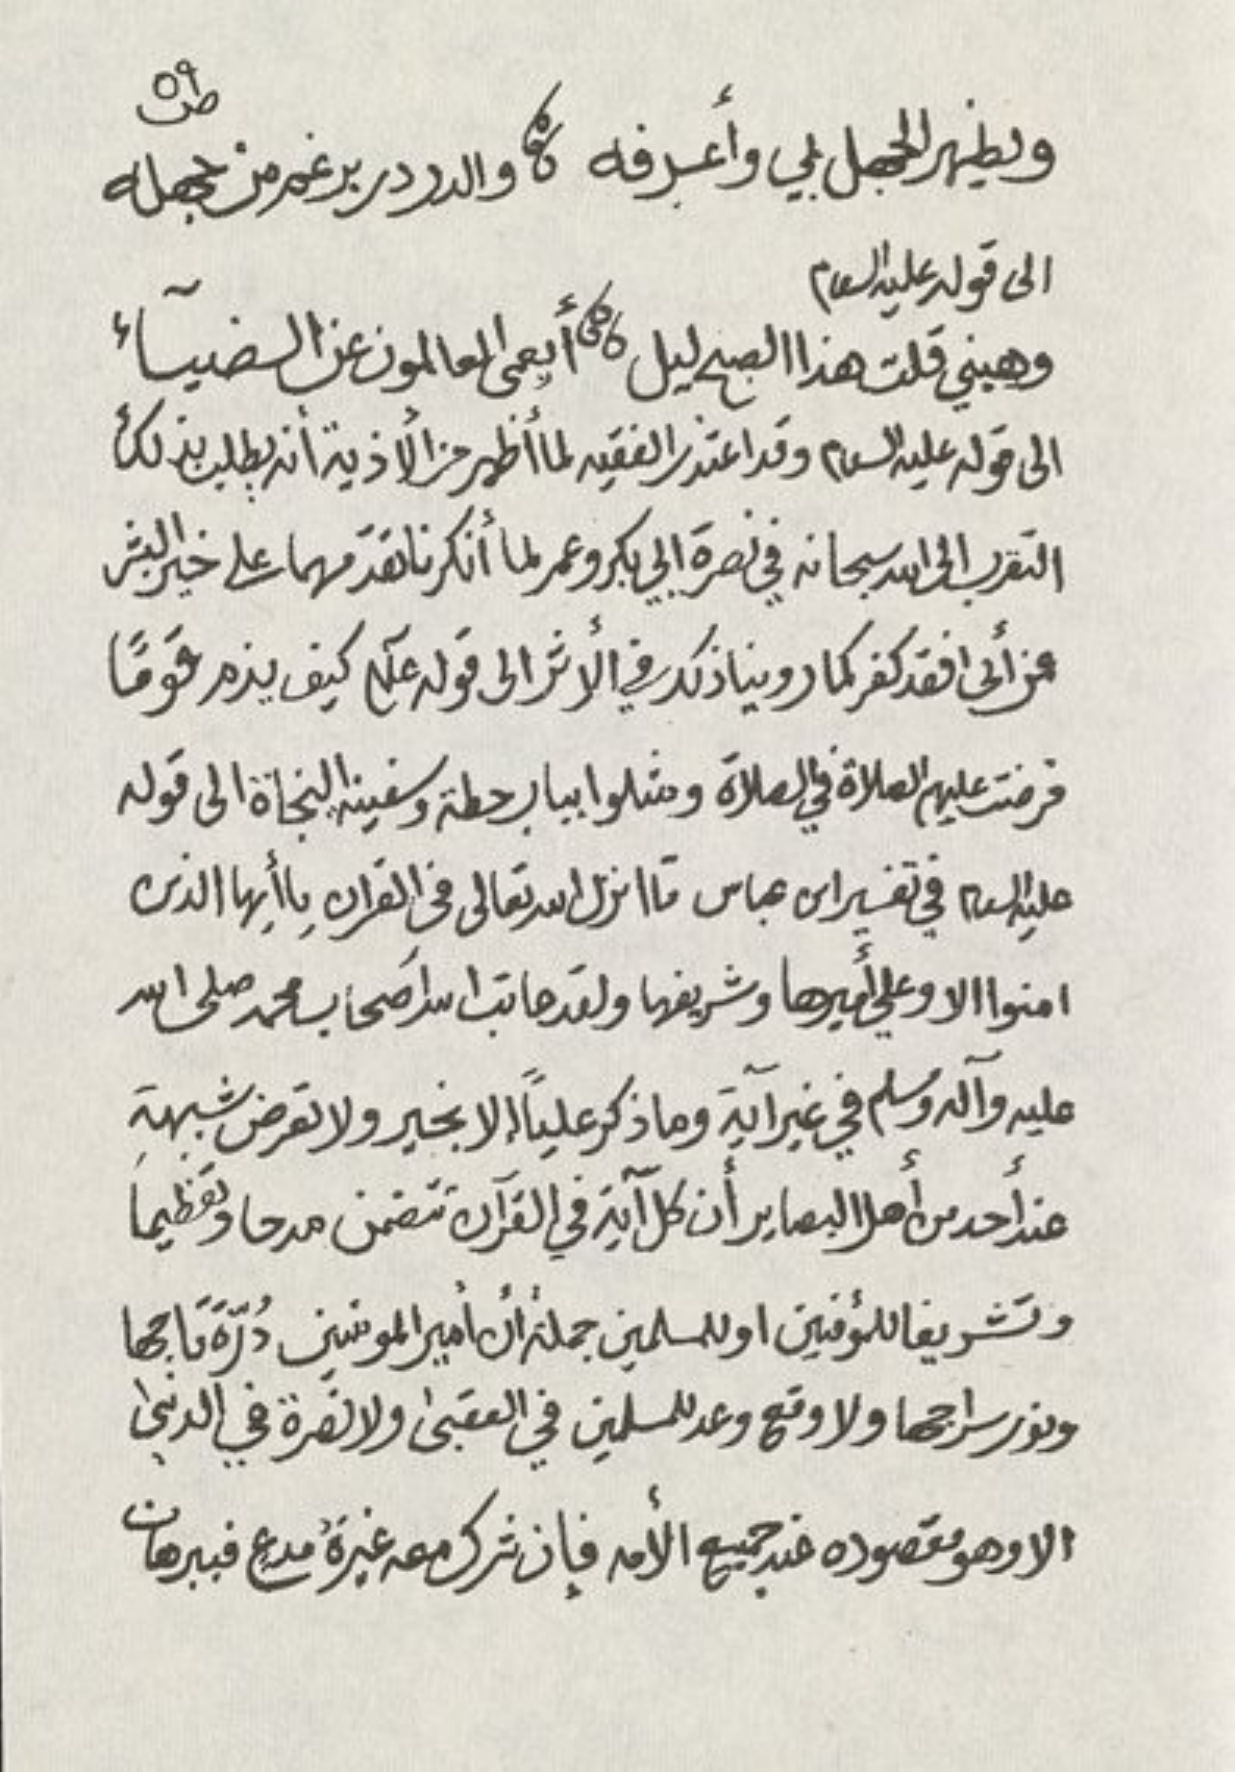 ٥٩
ويظهر الجهل بي وأعرفه والدر در برغم من جهله
الى قوله عليه السلام
وهبني قلت هذا الصبح ليل أيعمى العالمون عن الضيآء
الى قوله عليه السلام وقد اعتذر الفقيه لما أظهر من الأذية أنه يطلب بذلك
التقرب الى الله سبحانه في نصرة ابي بكر وعمر لما أنكرنا تقدمهما على خير البشر
من أبى فقد كفر كما روينا ذلك في الأثر الى قوله علكم كيف يذم قومًا
فرضت عليهم الصلاة في الصلاة ومثلوا بباب حطة وسفينة النجاة الى قوله
عليه السلام في تفسير ابن عباس ما انزل الله تعالى في القران يا أيها الذين
امنوا الا وعلي أميرها وشريفها ولقد عاتب الله أصحاب محمد صلى الله
عليه وآله وسلم في غير آية وما ذكر علياً إلا بخير ولا تعرض شبهة
عند أحد من أهل البصاير أن كل آية في القرآن تتضمن مدحا وتعظيما
وتشريفا للمؤمنين او للمسلمين جملة أن أمير المومنين دُرّة تاجها
ونور سراجها ولا وقع وعد للمسلمين في العقبى ولا نصرة في الدنيا
الا وهو مقصوده عند جميع الأمه فإن شرك معه غيرهُ مدع فببرهان